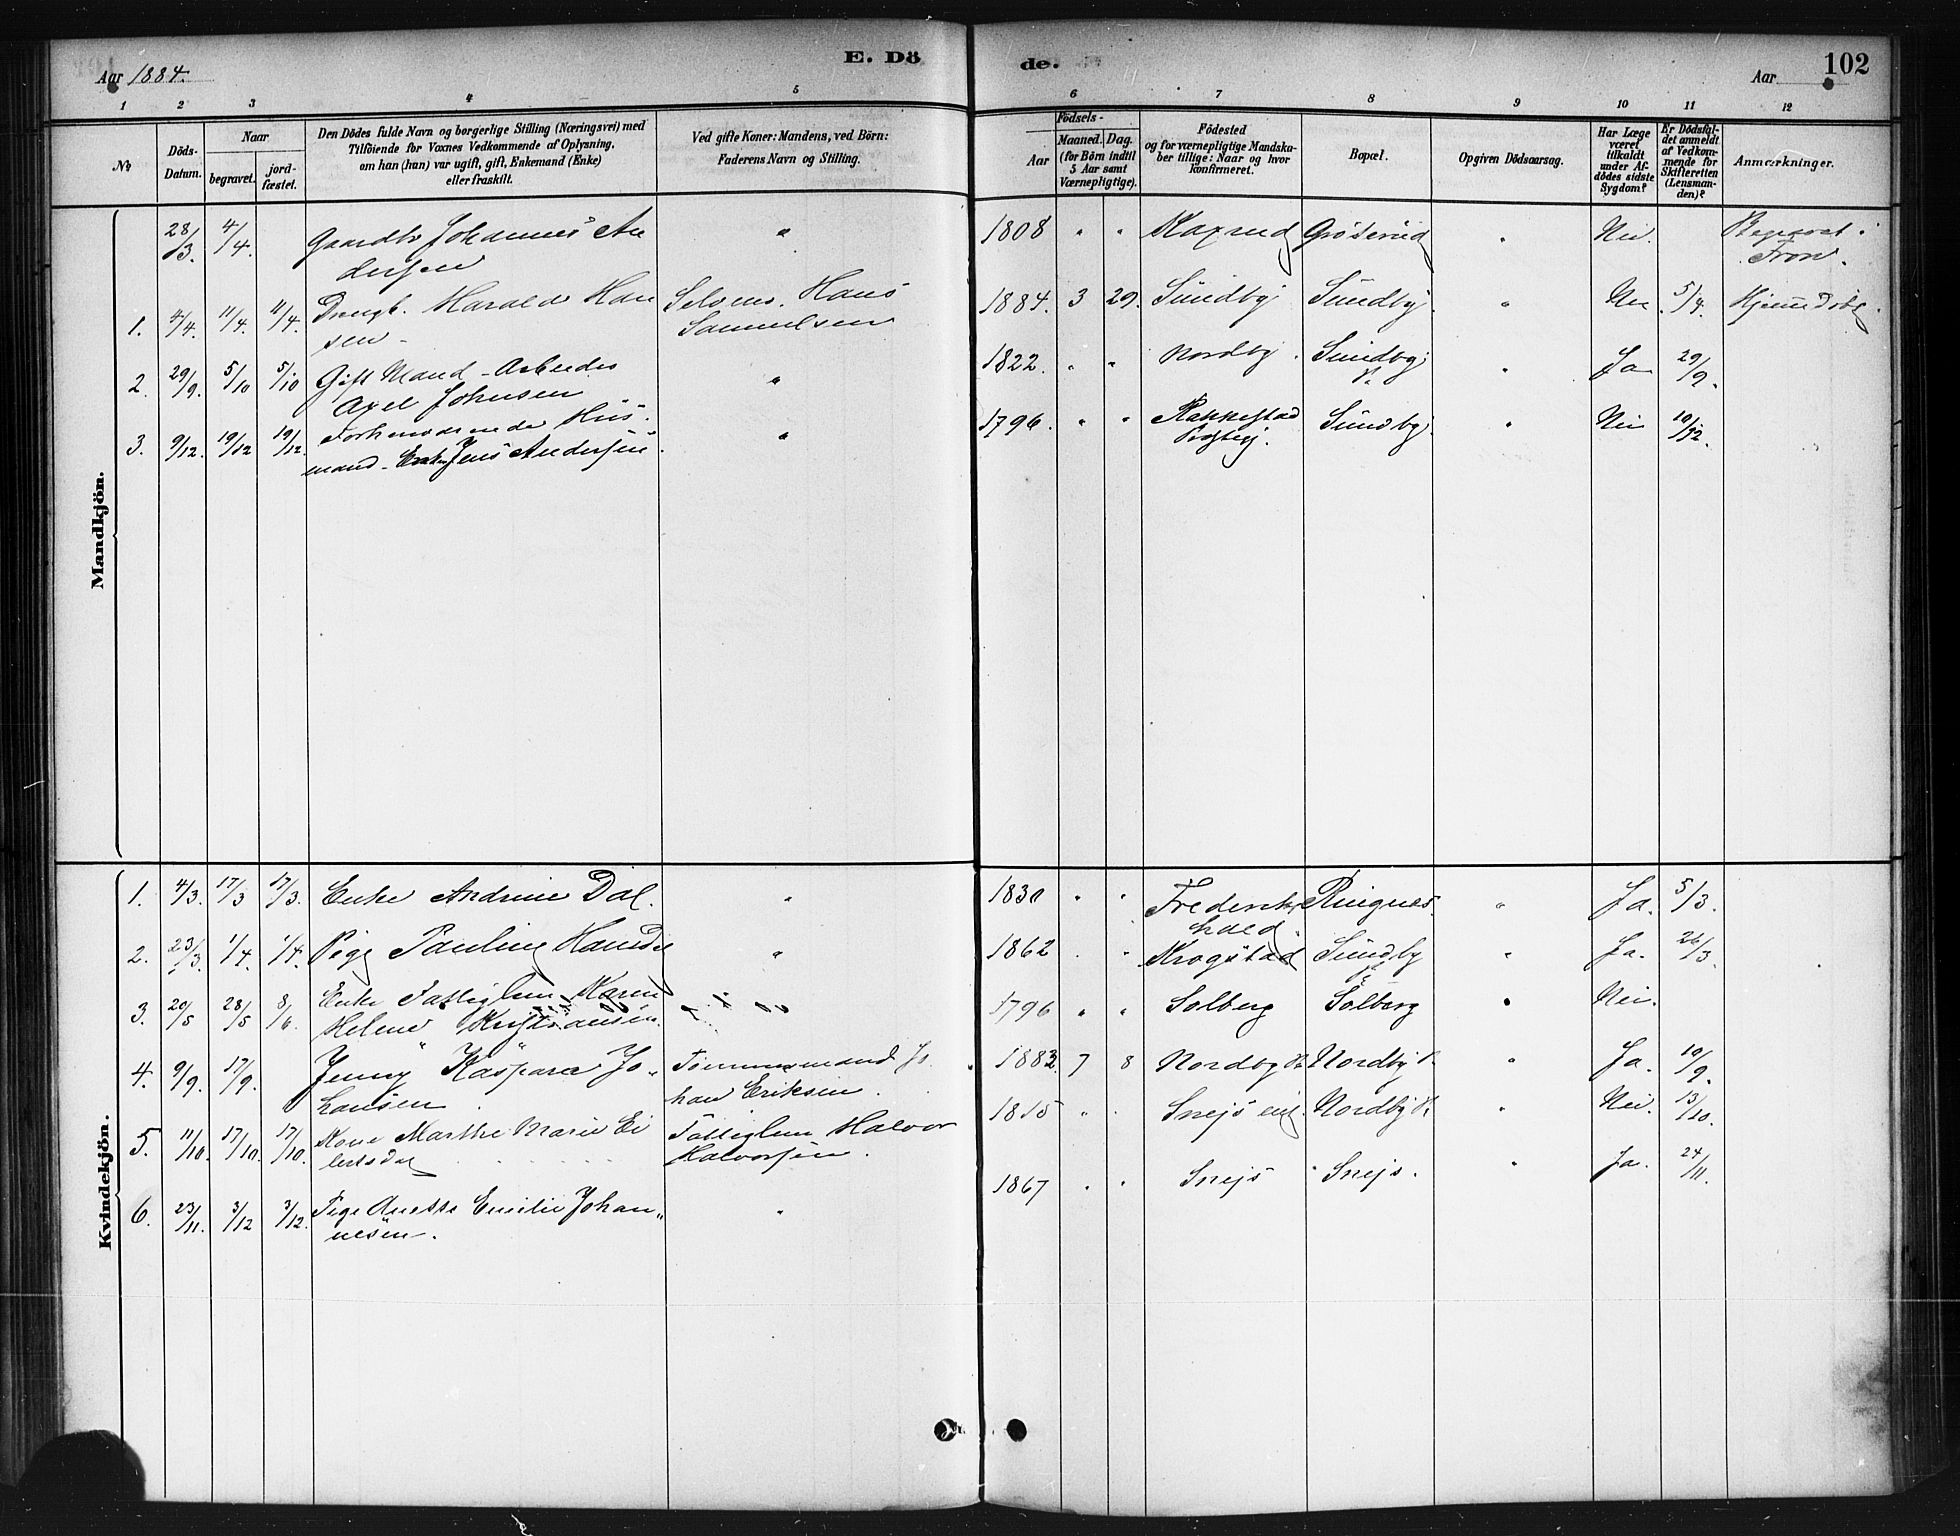 Aar 1884. E. Dö de. Aar 102
1 2 3 4 5 6 7 8 9 10 11 12
No
Döds-Datum.
Naar
begravet.
jord-fæstet.
Den Dödes fulde Navn og borgerlige Stilling (Næringsvei) med
Tilföiende for Voxnes Vedkommende af Oplysning,
om han (hun) var ugift, gift, Enkemand (Enke)
eller fraskilt.
Ved gifte Koner: Mandens, ved Börn:
Faderens Navn og Stilling.
Födsels-
Aar
Maaned. Dag.
(for Börn indtil
5 Aar samt
Værnepligtige).
Födested
og for værnepligtige Mandska-
ber tillige: Naar og hvor
konfirmeret.
Bopæl.
Opgiven Dödsaarsag.
Har Læge
været
tilkaldt
under Af-
dödes sidste
Sygdom?
Er Dödsfal-
det anmeldt
af Vedkom-
mende for
Skifteretten
(Lensman-
den)?
Anmærkninger.
Mandkjön.
28/3. 4/4. Gaardbr Johannes An " 1808 " " Kaxrud Gröterud " Nei. Begravet i
dersen Fron.
1. 4/4. 11/4. 11/4. Drengb. Harald Han Selveier Hans 1884. 3 29. Sundby Sundby. " Nei 5/4. Hjemmedöbt.
sen - Samuelsen
2. 29/9. 5/10 5/10 Gift Mand - Arbeider " 1822. " " Nordby. Sundby " Ja 29/9.
Axel Johnsen
3. 9/12. 19/12 19/12. Forhenværende Hus- " 1796. " " Rakkestad Sundby. " Nei 10/12.
mand - Enkem Jens Andersen. Prgjeld.
Kvindekjön.
1. 4/3. 17/3 17/3. Enke Andrine Dal. " 1830 " " Frederiks Ringnes. " Ja. 5/3.
hald.
2. 23/3. 1/4. 1/4. Pige Pauline Hansdr " 1862 " " Krogstad Sundby " Ja. 26/3.
3. 20/5 28/5 8/6. Enke Fattiglem Karen " 1796 " " Solberg Solberg " Nei.
Helene Kristiansen.
4. 9/9. 17/9. Jenny Kaspara Jo- Tömmermand Jo 1883. 7 8 Nordby Nordby " Ja. 10/9.
hansen han Eriksen.
5. 11/10. 17/10. 17/10. Kone Marthe Marie Ei Fattiglem Halvor 1815 " " Snejs eie Nordby " Nei. 13/10.
lertsdat Halvorsen.
6. 23/11. 3/12 3/12. Pige Anette Emilie Johan- " 1867 " " Snejs Snejs. " Ja. 24/11.
nesen.